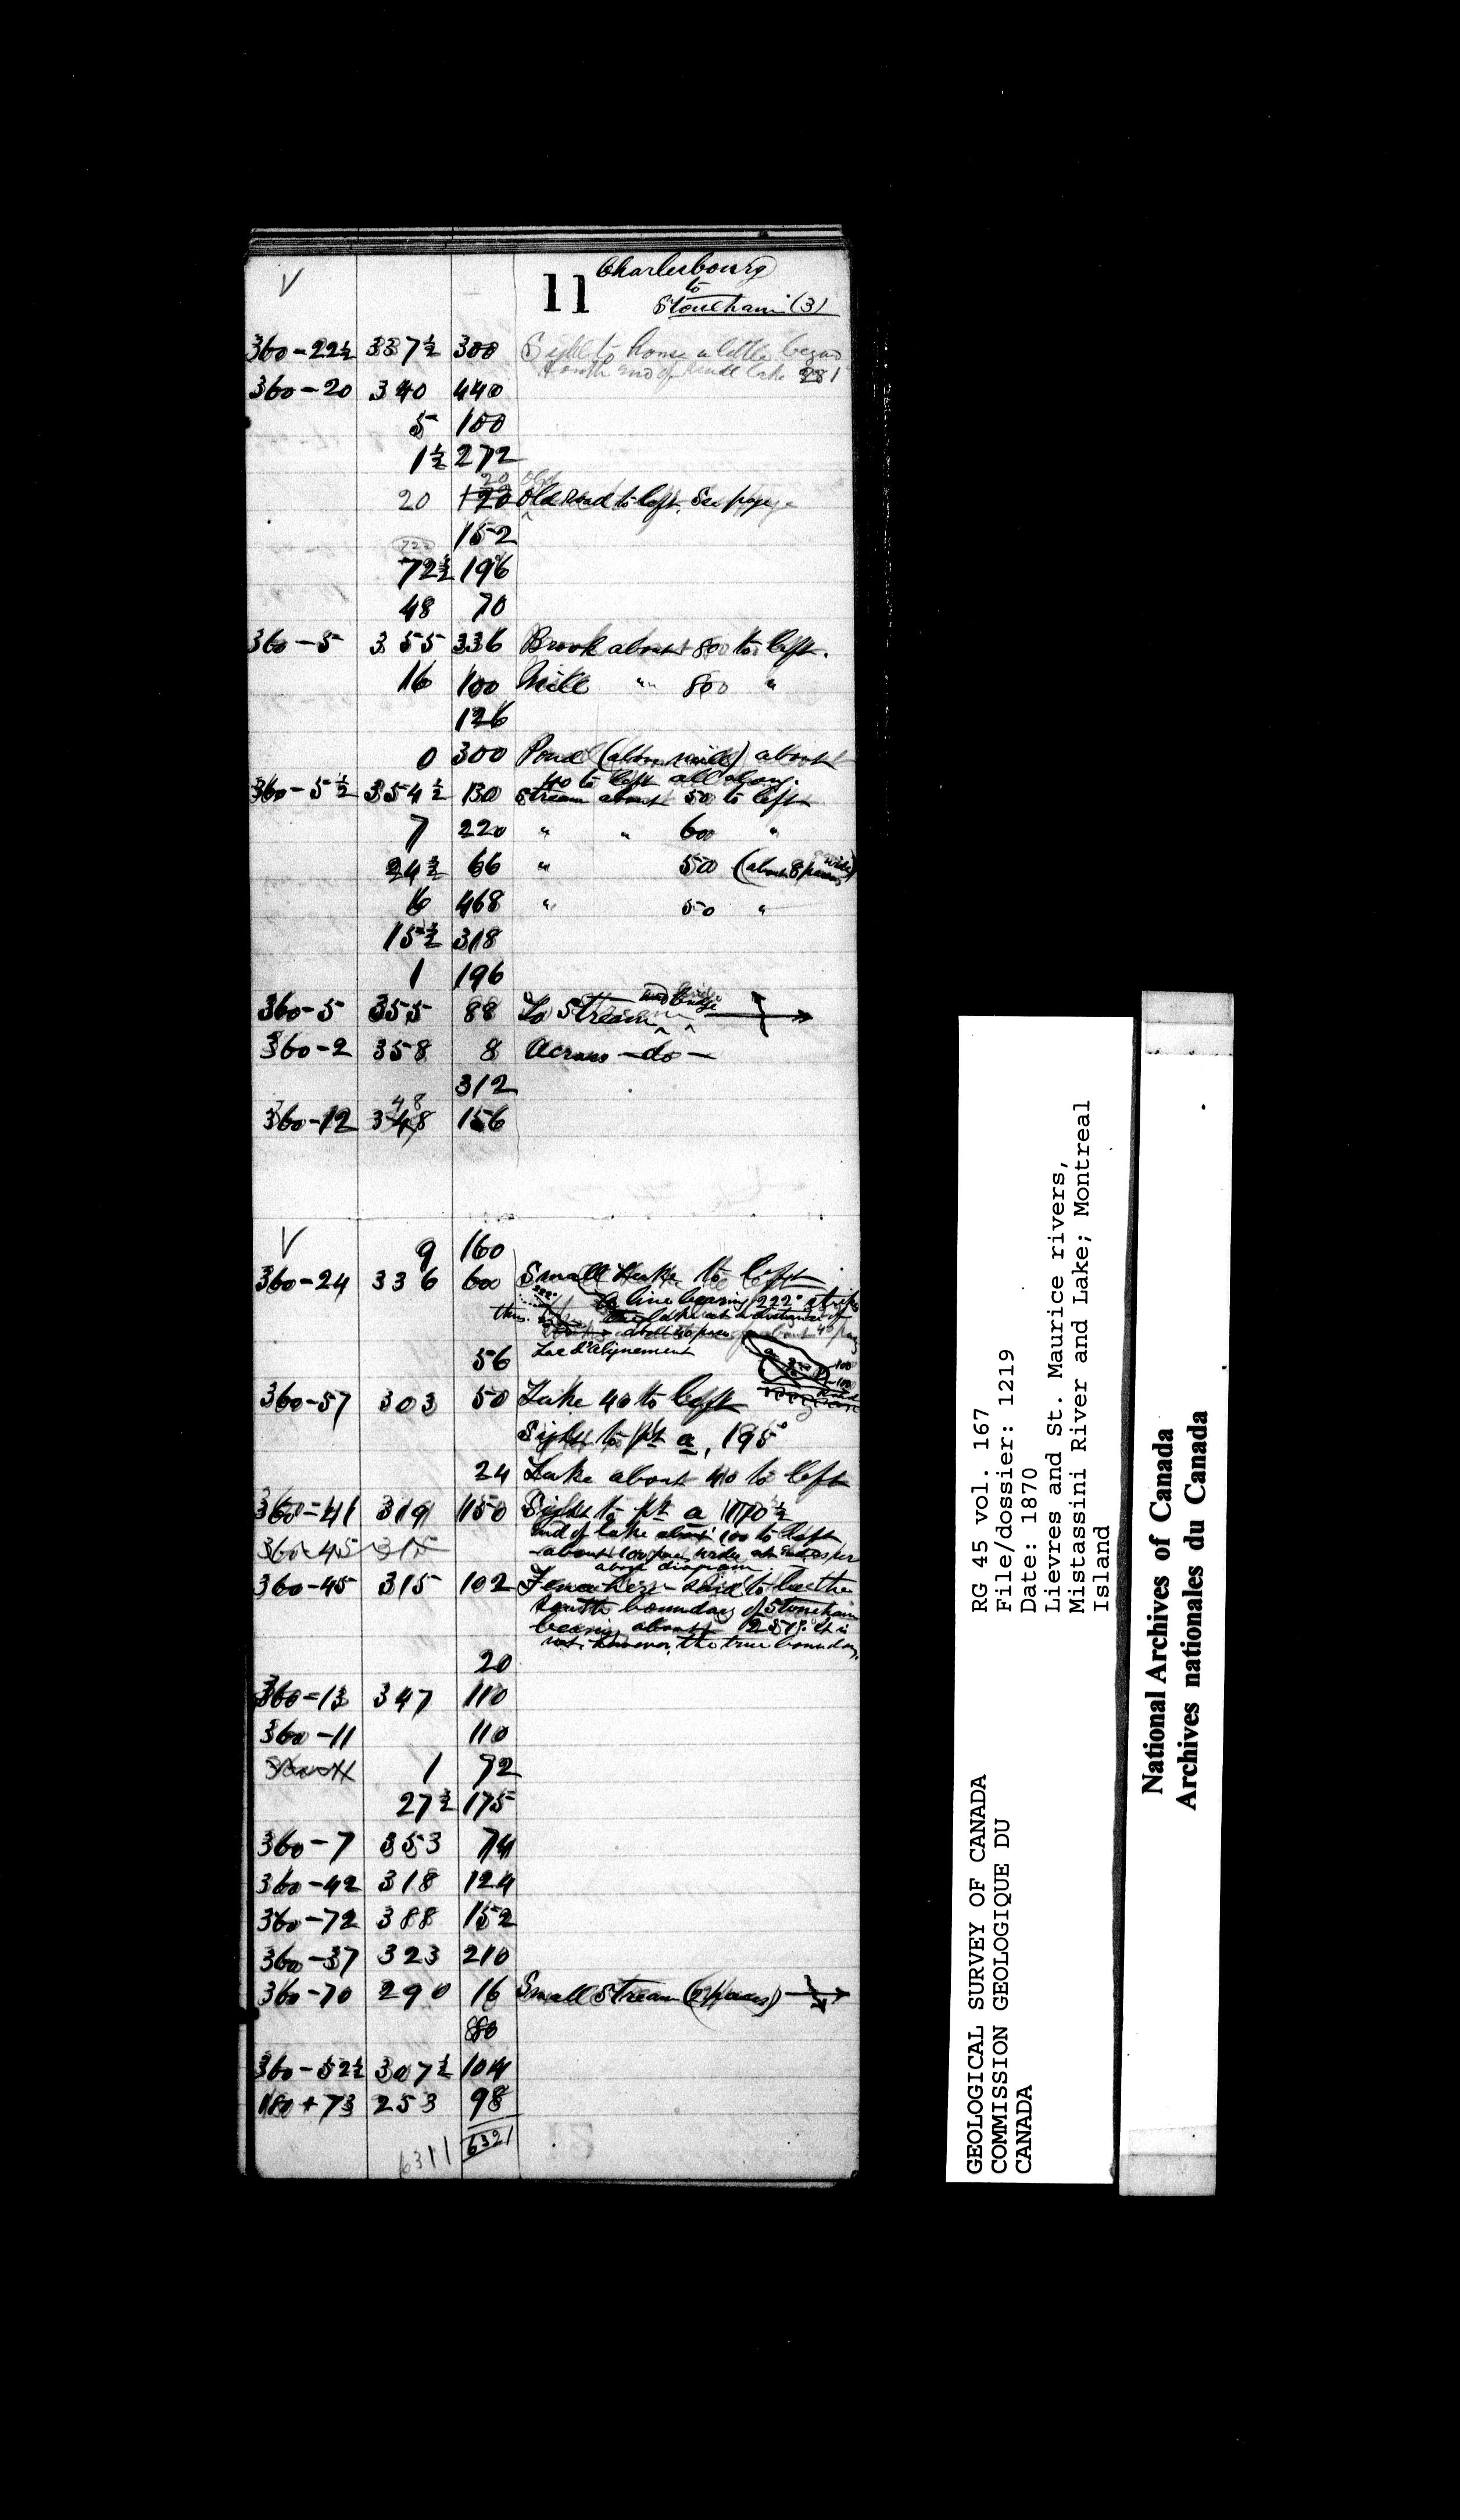 V
11 Charlesbourg
to
Stoneham (3)
360-22½ 337½ 300 Sight to house a little beyond
south end of small lake 281
360-20 340 440
5 100
1½ 272
20
20 120 Old Road to left. See page
152
72½ 196
48 70
360-5 355 336 Brook about 80 to left.
16 100 Mill " 800 "
126
0 300 Pond (above mill) about
40 to left all along.
360-5½ 354½ 130 Stream about 50 to left
7 220 " " 600 "
24½ 66 " 50 (about 8 paces wide)
6 468 " 50 "
15½ 318
1 196
360-5 355 88 To Stream and bridge
360-2 358 8 Across -do-
312
48
360-12 348 156
V
9 160
360-24 336 600 Small Lake to left
line bearing 222° strikes
thus. the lake at a distance of
about 40 paces
56 Lac d'alignement
100
100
360-57 303 50 Lake 40 to left
Sight to pt a, 195°
24 Lake about 40 to left
360-41 319 150 Sight to pt a 170½
End of lake about 100 to left
360-45 315 about 100 paces wide at end as per
above diagram.
360-45 315 102 Fence here said to be the
South boundary of Stoneham
bearing about 257°. It is
not, however, the true boundary.
20
360-13 347 110
360-11 110
1 72
27½ 175
360-7 353 74
360-42 318 124
360-72 388 152
360-37 323 210
360-70 290 16 Small Stream (2 paces)
80
360-52½ 307½ 104
180+73 253 98
6311 6321
GEOLOGICAL SURVEY OF CANADA
COMMISSION GEOLOGIQUE DU
CANADA
RG 45 vol. 167
File/dossier: 1219
Date: 1870
Lievres and St. Maurice rivers,
Mistassini River and Lake; Montreal
Island
National Archives of Canada
Archives nationales du Canada